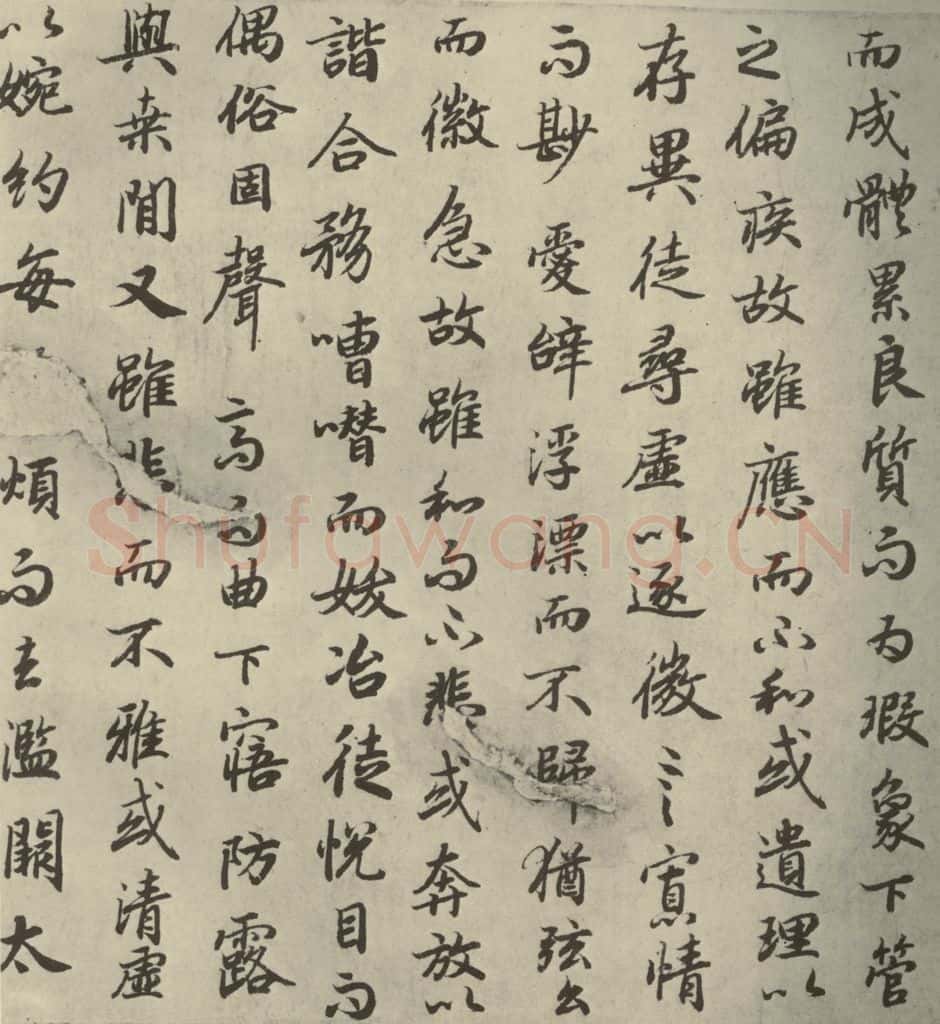 而成體累良質而為瑕象下管
之偏疾故雖應而不和或遺理以
存異徒尋虛以逐微言寡情
而尠愛辝浮漂而不歸猶弦么
而徽急故雖和而不悲或奔放以
諧合務嘈囋而妖冶徒悅目而
偶俗固聲高而曲下寤防露
與桒間又雖悲而不雅或清虛
以婉約每煩而去濫闕太
Shufawang.CN